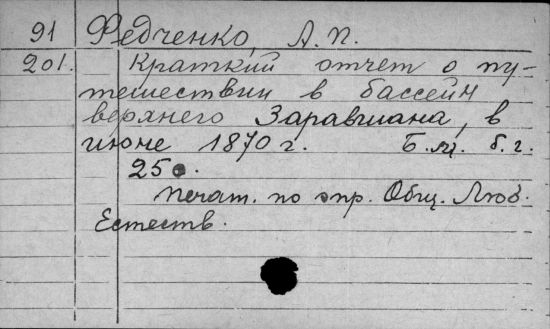 91 Федченко, А.П.
201. Краткий отчет о пу-
тешествии в бассейн
верхнего Заравшана, в
июне 1870 г. Б.м. б.г.
25с.
Печат. по опр. Общ. Люб.
Естеств.